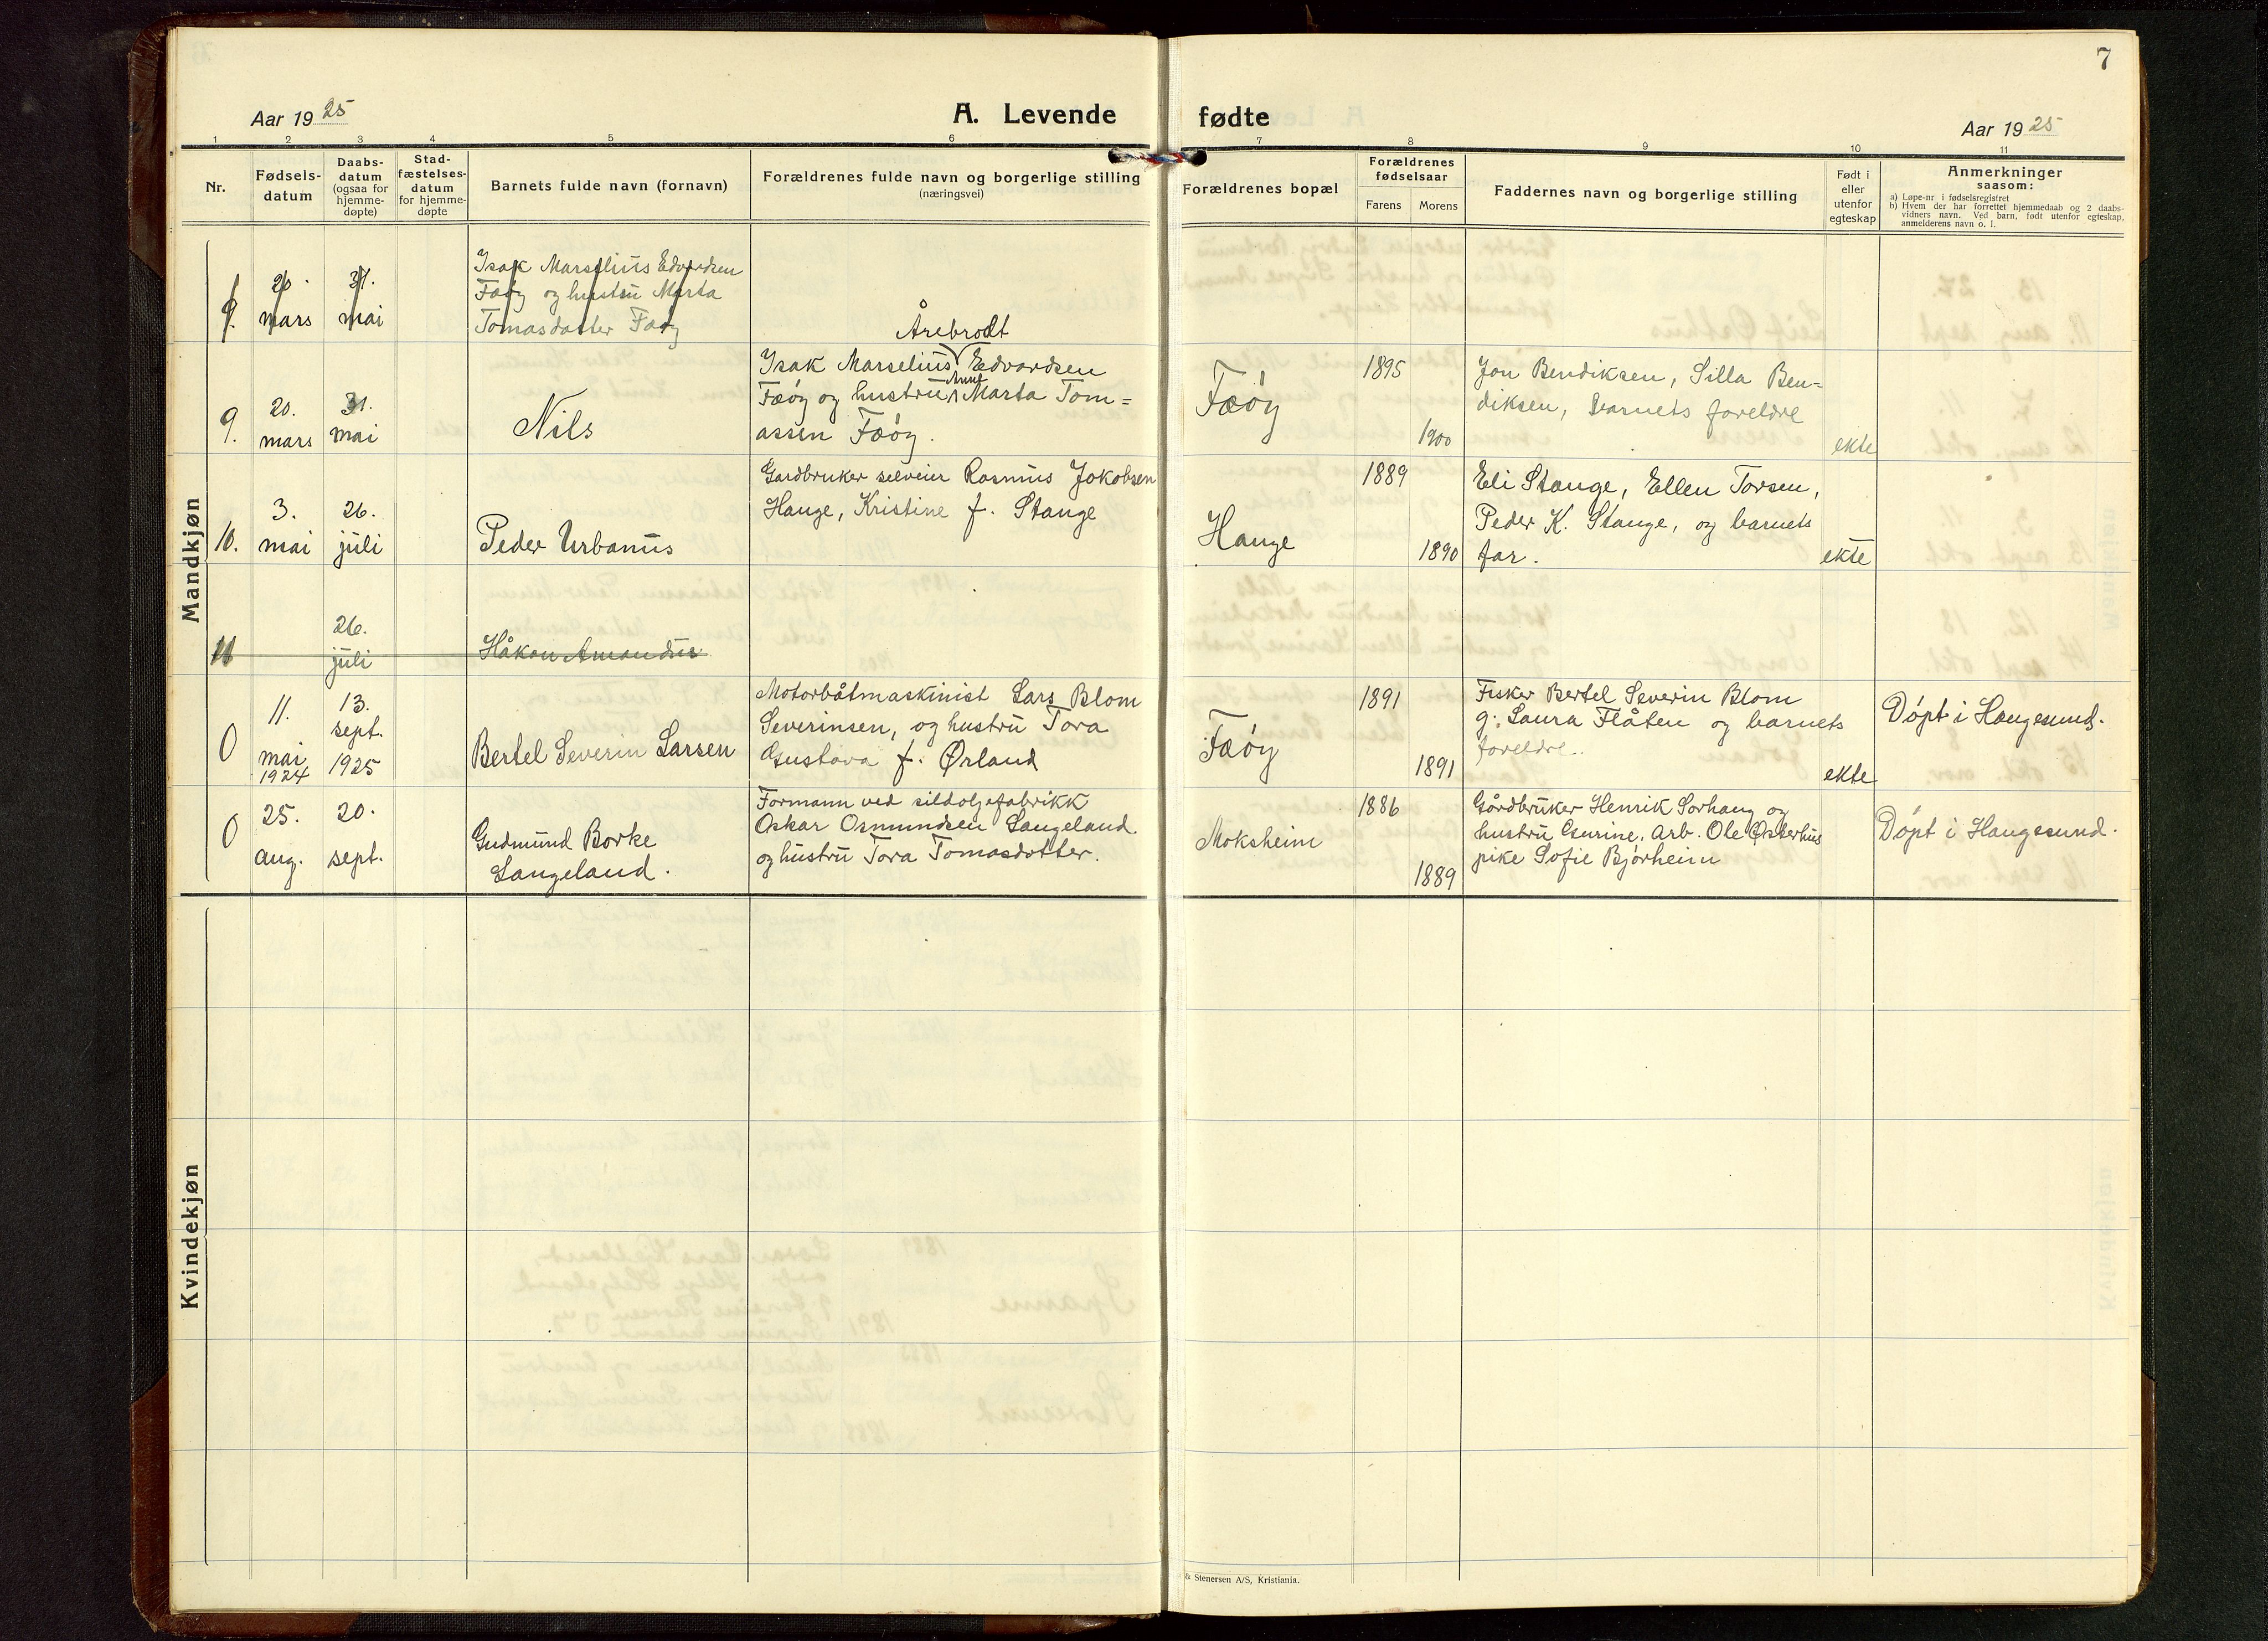 7
Aar 1925
A. Levende fødte
Aar 1925
1 2 3 4 5 6 7 8 9 10 11
Nr.
Fødsels-
datum
Daabs-
datum
(ogsaa for
hjemme-
døpte)
Stad-
fæstelses-
datum
for hjemme-
døpte
Barnets fulde navn (fornavn)
Forældrenes fulde navn og borgerlige stilling
(næringsvei)
Forældrenes bopæl
Forældrenes
fødselsaar
Farens Morens
Faddernes navn og borgerlige stilling
Født i
eller
utenfor
egteskap
Anmerkninger
saasom:
a) Løpe-nr i fødselsregistret
b) Hvem der har forrettet hjemmedaab og 2 daabs-
vidners navn. Ved barn, født utenfor egteskap,
anmelderens navn o. l.
Mandkjøn
9.
20.
mars
31.
mai
Isak Marselius Edvardsen
Fæøy og hustru Marta
Tomasdatter Fæøy
9.
20.
mars
31.
mai
Nils
Årebrodt
Isak Marselius Edvardsen
Fæøy og hustru Anna Marta Tom=
assen Fæøy.
Fæøy
1895
1900
Jon Bendiksen, Silla Ben=
diksen, barnets foreldre
ekte
10.
3.
mai
26.
juli
Peder Urbanus
Gardbruker selveier Rasmus Jakobsen
Hauge, Kristine f. Stange
Hauge
1889
1890
Eli Stange, Ellen Torsen,
Peder K. Stange, og barnets
far.
ekte
11
26.
juli
Håkon Amandus
0
11.
mai
1924
13.
sept.
1925
Bertel Severin Larsen
Motorbåtmaskinist Lars Blom
Severinsen, og hustru Tora
Gustava f. Ørland
Fæøy
1891
1891
Fisker Bertel Severin Blom
g. Laura Flåten og barnets
foreldre.
ekte
Døpt i Haugesund.
0
25.
aug.
20.
sept.
Gudmund Borke
Langeland.
Formann ved sildoljefabrikk
Oskar Osmundsen Langeland.
og hustru Tora Tomasdotter.
Moksheim
1886
1889
Gårdbruker Henrik Sørhaug og
hustru Gurine, Arb. Ole Østerhus
pike Sofie Bjørheim
Døpt i Haugesund.
Kvindekjøn
& Stenersen A/S, Kristiania.